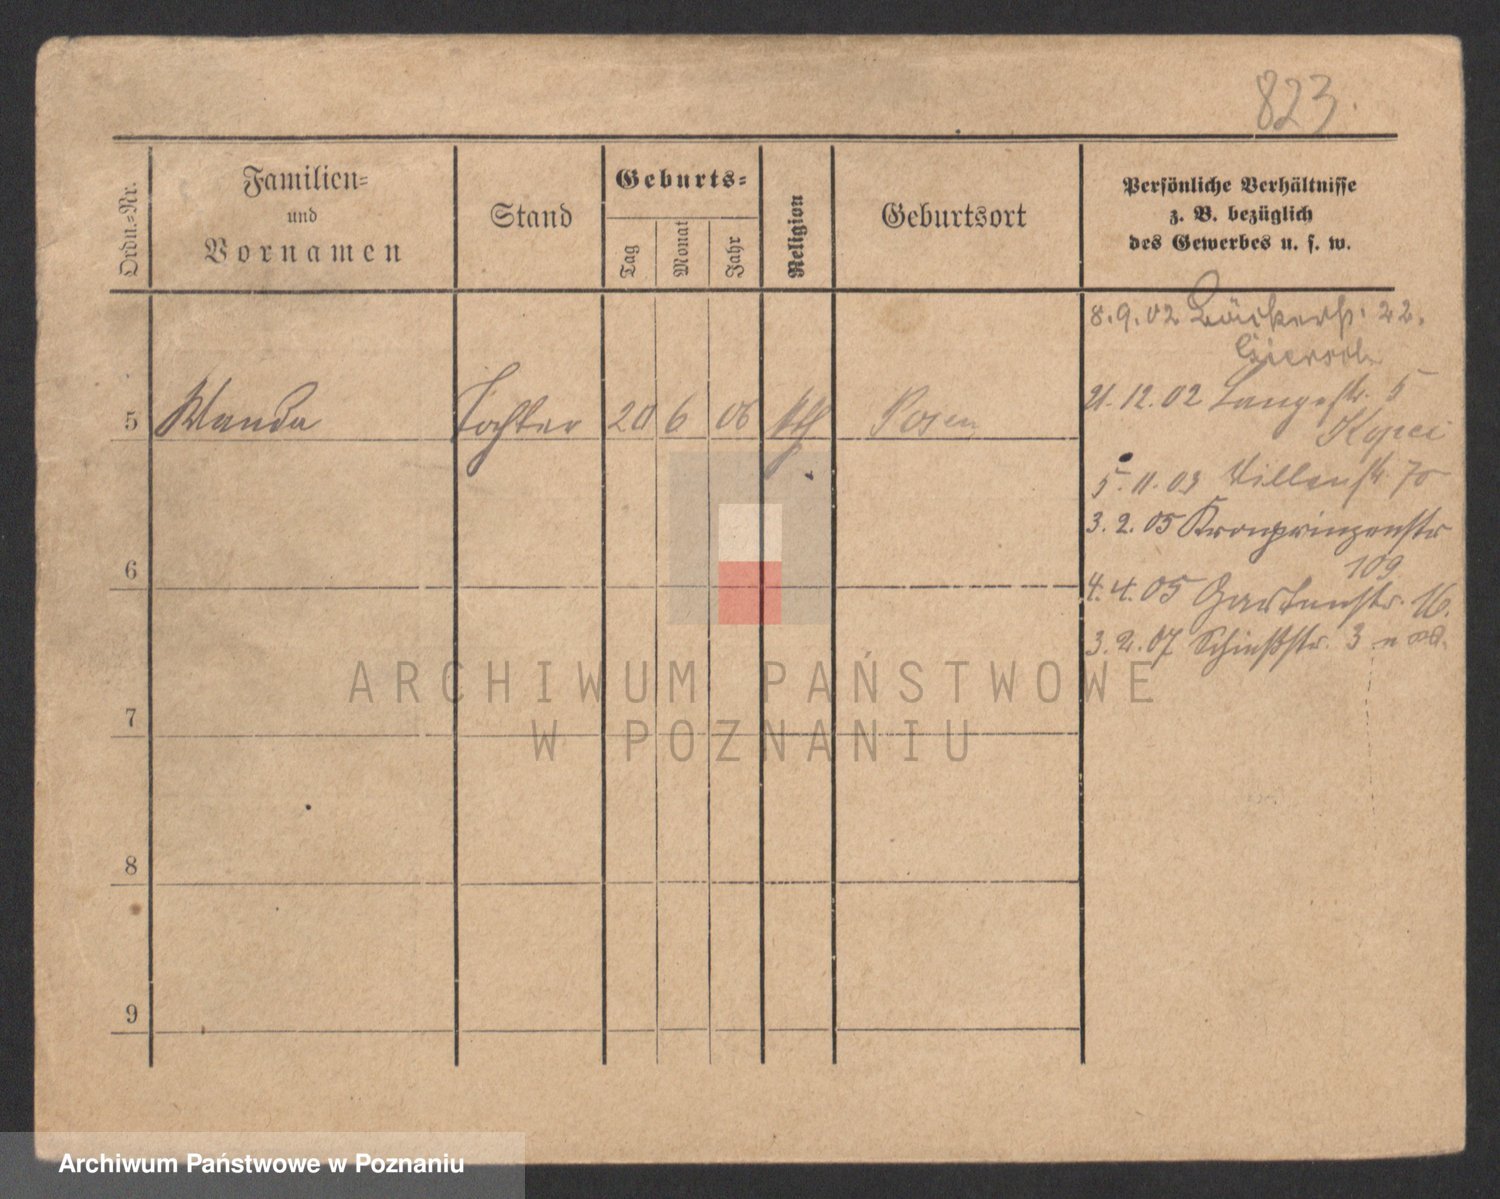 823.
Ordn.=Nr.
Familien=
und
Vornamen
Stand
Geburts=
Tag
Monat
Jahr
Religion
Geburtsort
Persönliche Verhältnisse
z. B. bezüglich
des Gewerbes u. s. w.
8.9.02 Bäckerstr. 22.
5 Wanda Tochter 20 6 06 kth Posen
21.12.02 Langestr. 5
5.11.03 70
3.2.05 Kronprinzenstr
109
4.4.05 Gartenstr. 16.
3.2.07 Schießstr. 3
6
7
8
9
ARCHIWUM PAŃSTWOWE
W POZNANIU
Archiwum Państwowe w Poznaniu